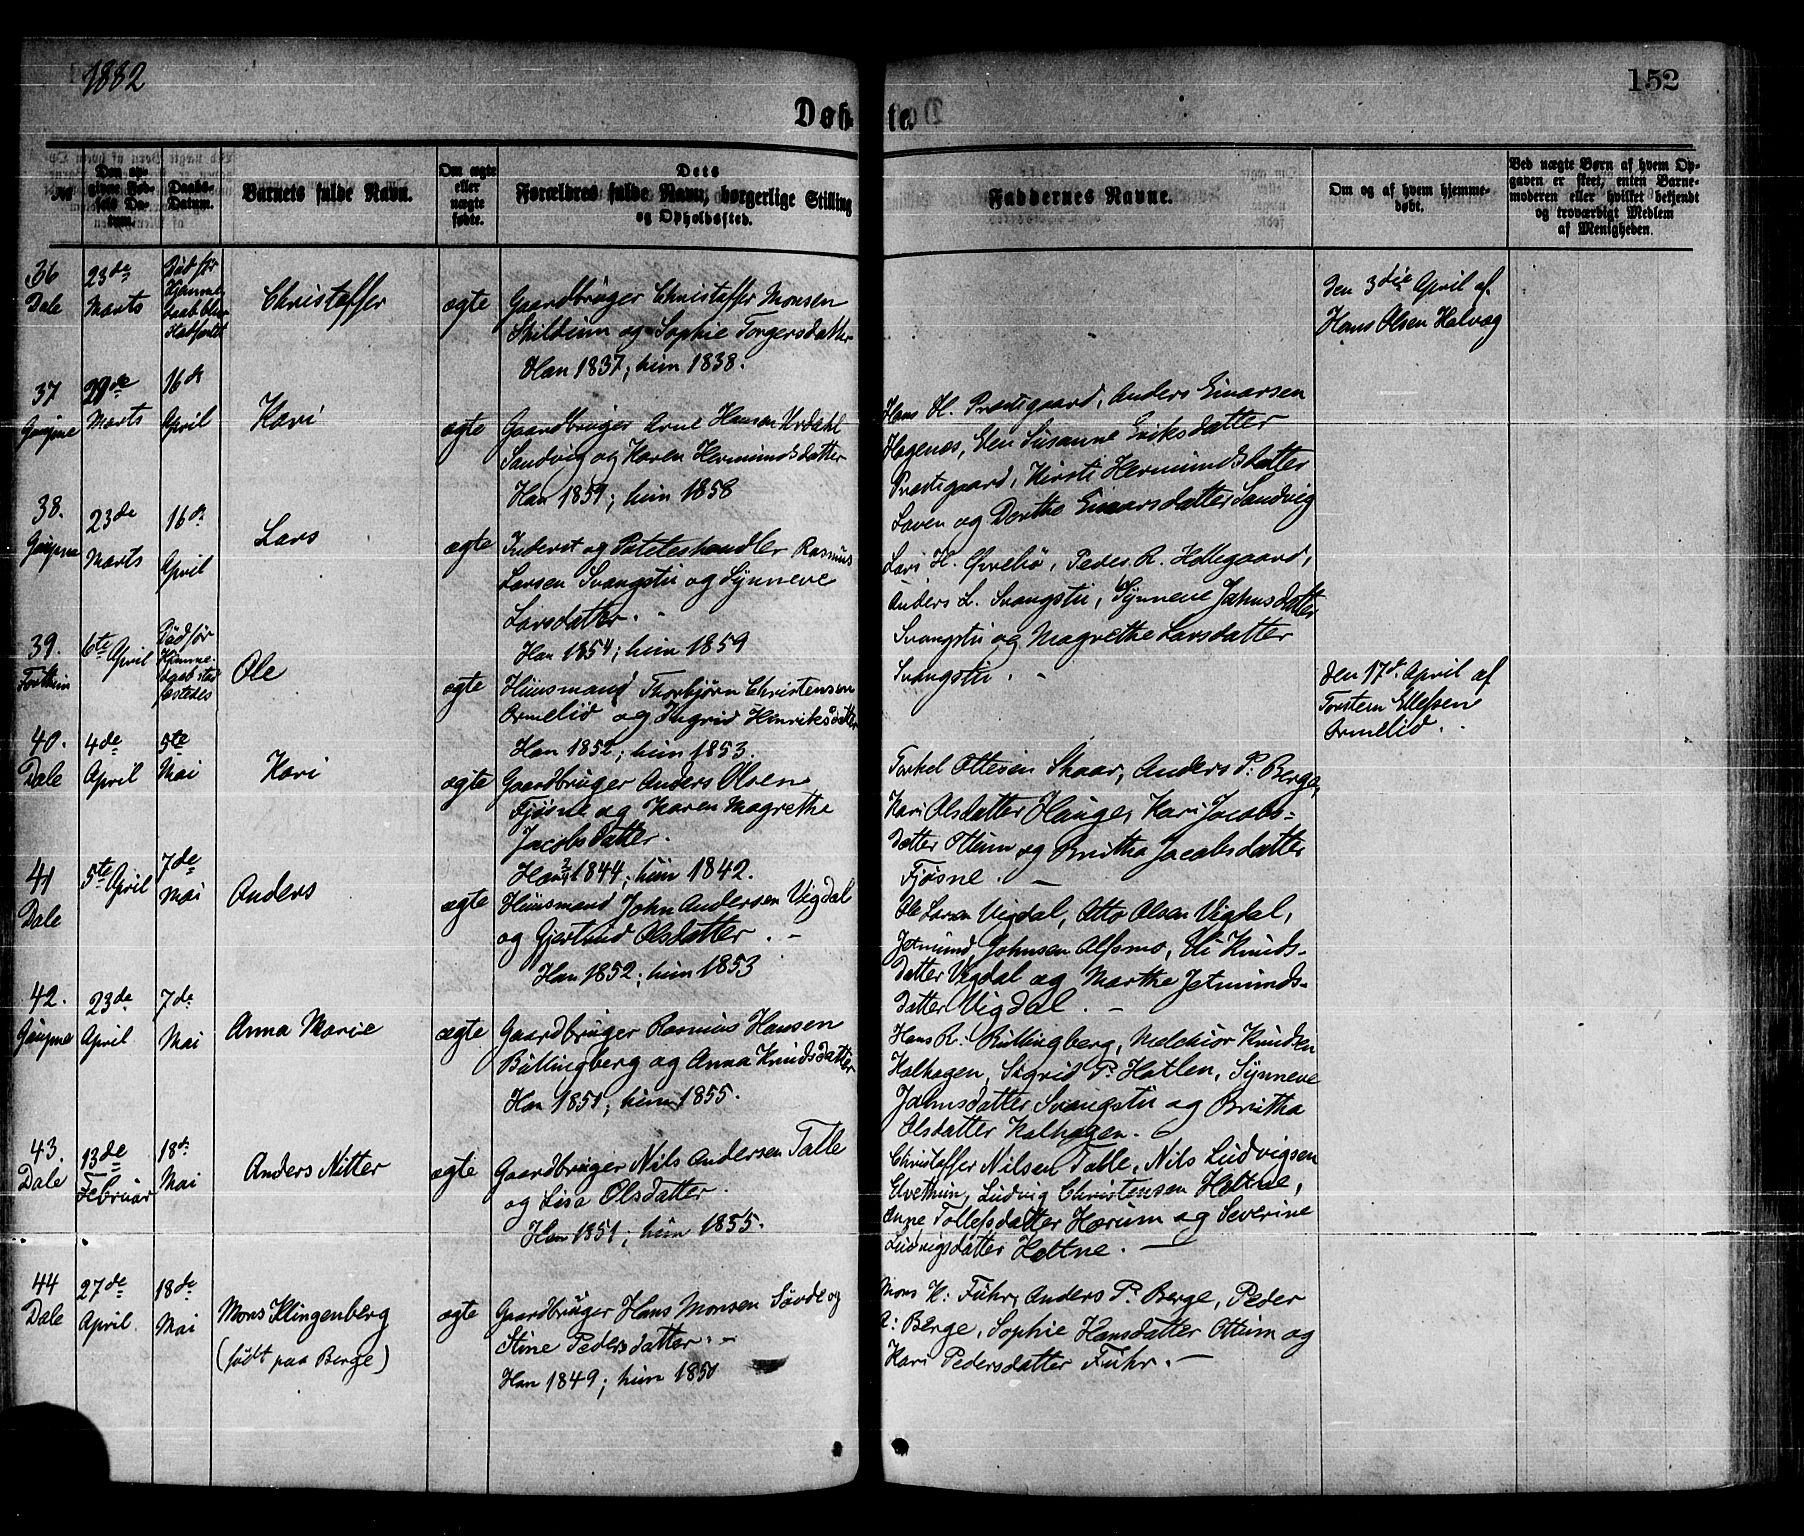 1882
152
Døbte.
No
Den opgivne Fødsels Datum.
Daabs-Datum.
Barnets fulde Navn.
Om ægte eller uægte födte.
Dets Forældres fulde Navn, borgerlige Stilling og Opholdssted.
Faddernes Navne.
Om og af hvem hjemmedøbt.
Ved uægte Børn af hvem Opgaven er skeet, enten Barnemoderen eller hvilket bekjendt og troværdigt Medlem af Menigheden.
36
Dale
23de
Marts
Död før
Hjemme
Christoffer
ægte
Gaardbruger Christoffer Monsen
og Sophie Torgersdatter
Han 1837; hun 1838.
Den 3die April af
Hans Olsen Halvag
37
Gaupne
Marts
16de
April
Kari
ægte
Gaardbruger Arne Hansen Urdahl
Sandvig og Karen Hermundsdatter
Han 1859; hun 1858
Hans H. Prestegaard, Anders Einarsen
Hagenæs, Elen Susanne Eriksdatter
Prestegaard, Kirsti Hermundsdatter
Laven og Dorthe Einarsdatter Sandvig
38.
Gaupne
23de
Marts
16de
April
Lars
ægte
Inderst og Rasmus
Larsen Svangstu og Synneve
Larsdatter.
Han 1854; hun 1859
Lars H. Øvrebø, Peder R. Hallegaard,
Anders L. Svangstu, Synneve Jahnsdatter
Svangstu og Magrethe Larsdatter
Svangstu.
39.
6te April
Död før
Hjemme
Ole
ægte
Huusmand Thorbjørn Christensen
Ormelid og Ingrid Hinriksdatter
Han 1852; hun 1853.
Den 17de April af
Torstein Ellefsen
Ormelid.
40.
Dale
4de
April
5te
Mai
Kari
ægte
Gaardbruger Anders Olsen
Fjøsne og Karen Magrethe
Jacobsdatter.
Han 1844; hun 1842.
Torkel Ottesen Skaar, Anders P. Berge,
Kari Olsdatter Hauge, Kari Jacobs-
datter Ottum og Britha Jacobsdatter
Fjøsne. —
41
Dale
5te April
7de
Mai
Anders
ægte
Huusmand John Andersen Vigdal
og Gjertrud Olsdatter. —
Han 1852; hun 1853
Ole Larsen Vigdal, Otto Olsen Vigdal,
Jetmund Johnsen Alsmo, Eli Knuds-
datter Vigdal og Marthe Jetmunds-
datter Vigdal. —
42.
Gaupne
23de
April
7de
Mai
Anna Marie
ægte
Gaardbruger Rasmus Hansen
Bullingberg og Anna Knudsdatter
Han 1851; hun 1855.
Hans R. Bullingberg, Melchior Knudsen
Kalhagen, Sigrid P. Hatlen, Synneve
Jahnsdatter Svangstu og Britha
Olsdatter Kalhagen. —
43.
Dale
13de
Februar
18de
Mai
Anders Nitter
ægte
Gaardbruger Nils Andersen Talle
og Lisa Olsdatter.
Han 1851; hun 1855.
Christoffer Nilsen Talle, Nils Ludvigsen
Elvethun, Ludvig Christensen Holtne,
Anne Tollefsdatter Hærum og Severine
Ludvigsdatter Holtne. —
44
Dale
27de
April.
18de
Mai
Mons Klingenberg
(født paa Berge)
ægte
Gaardbruger Hans Monsen Søvde og
Stine Pedersdatter. —
Han 1849; hun 1850
Mons H. Fuhr, Anders P. Berge, Peder
A. Berge, Sophie Hansdatter Ottum og
Kari Pedersdatter Fuhr. —